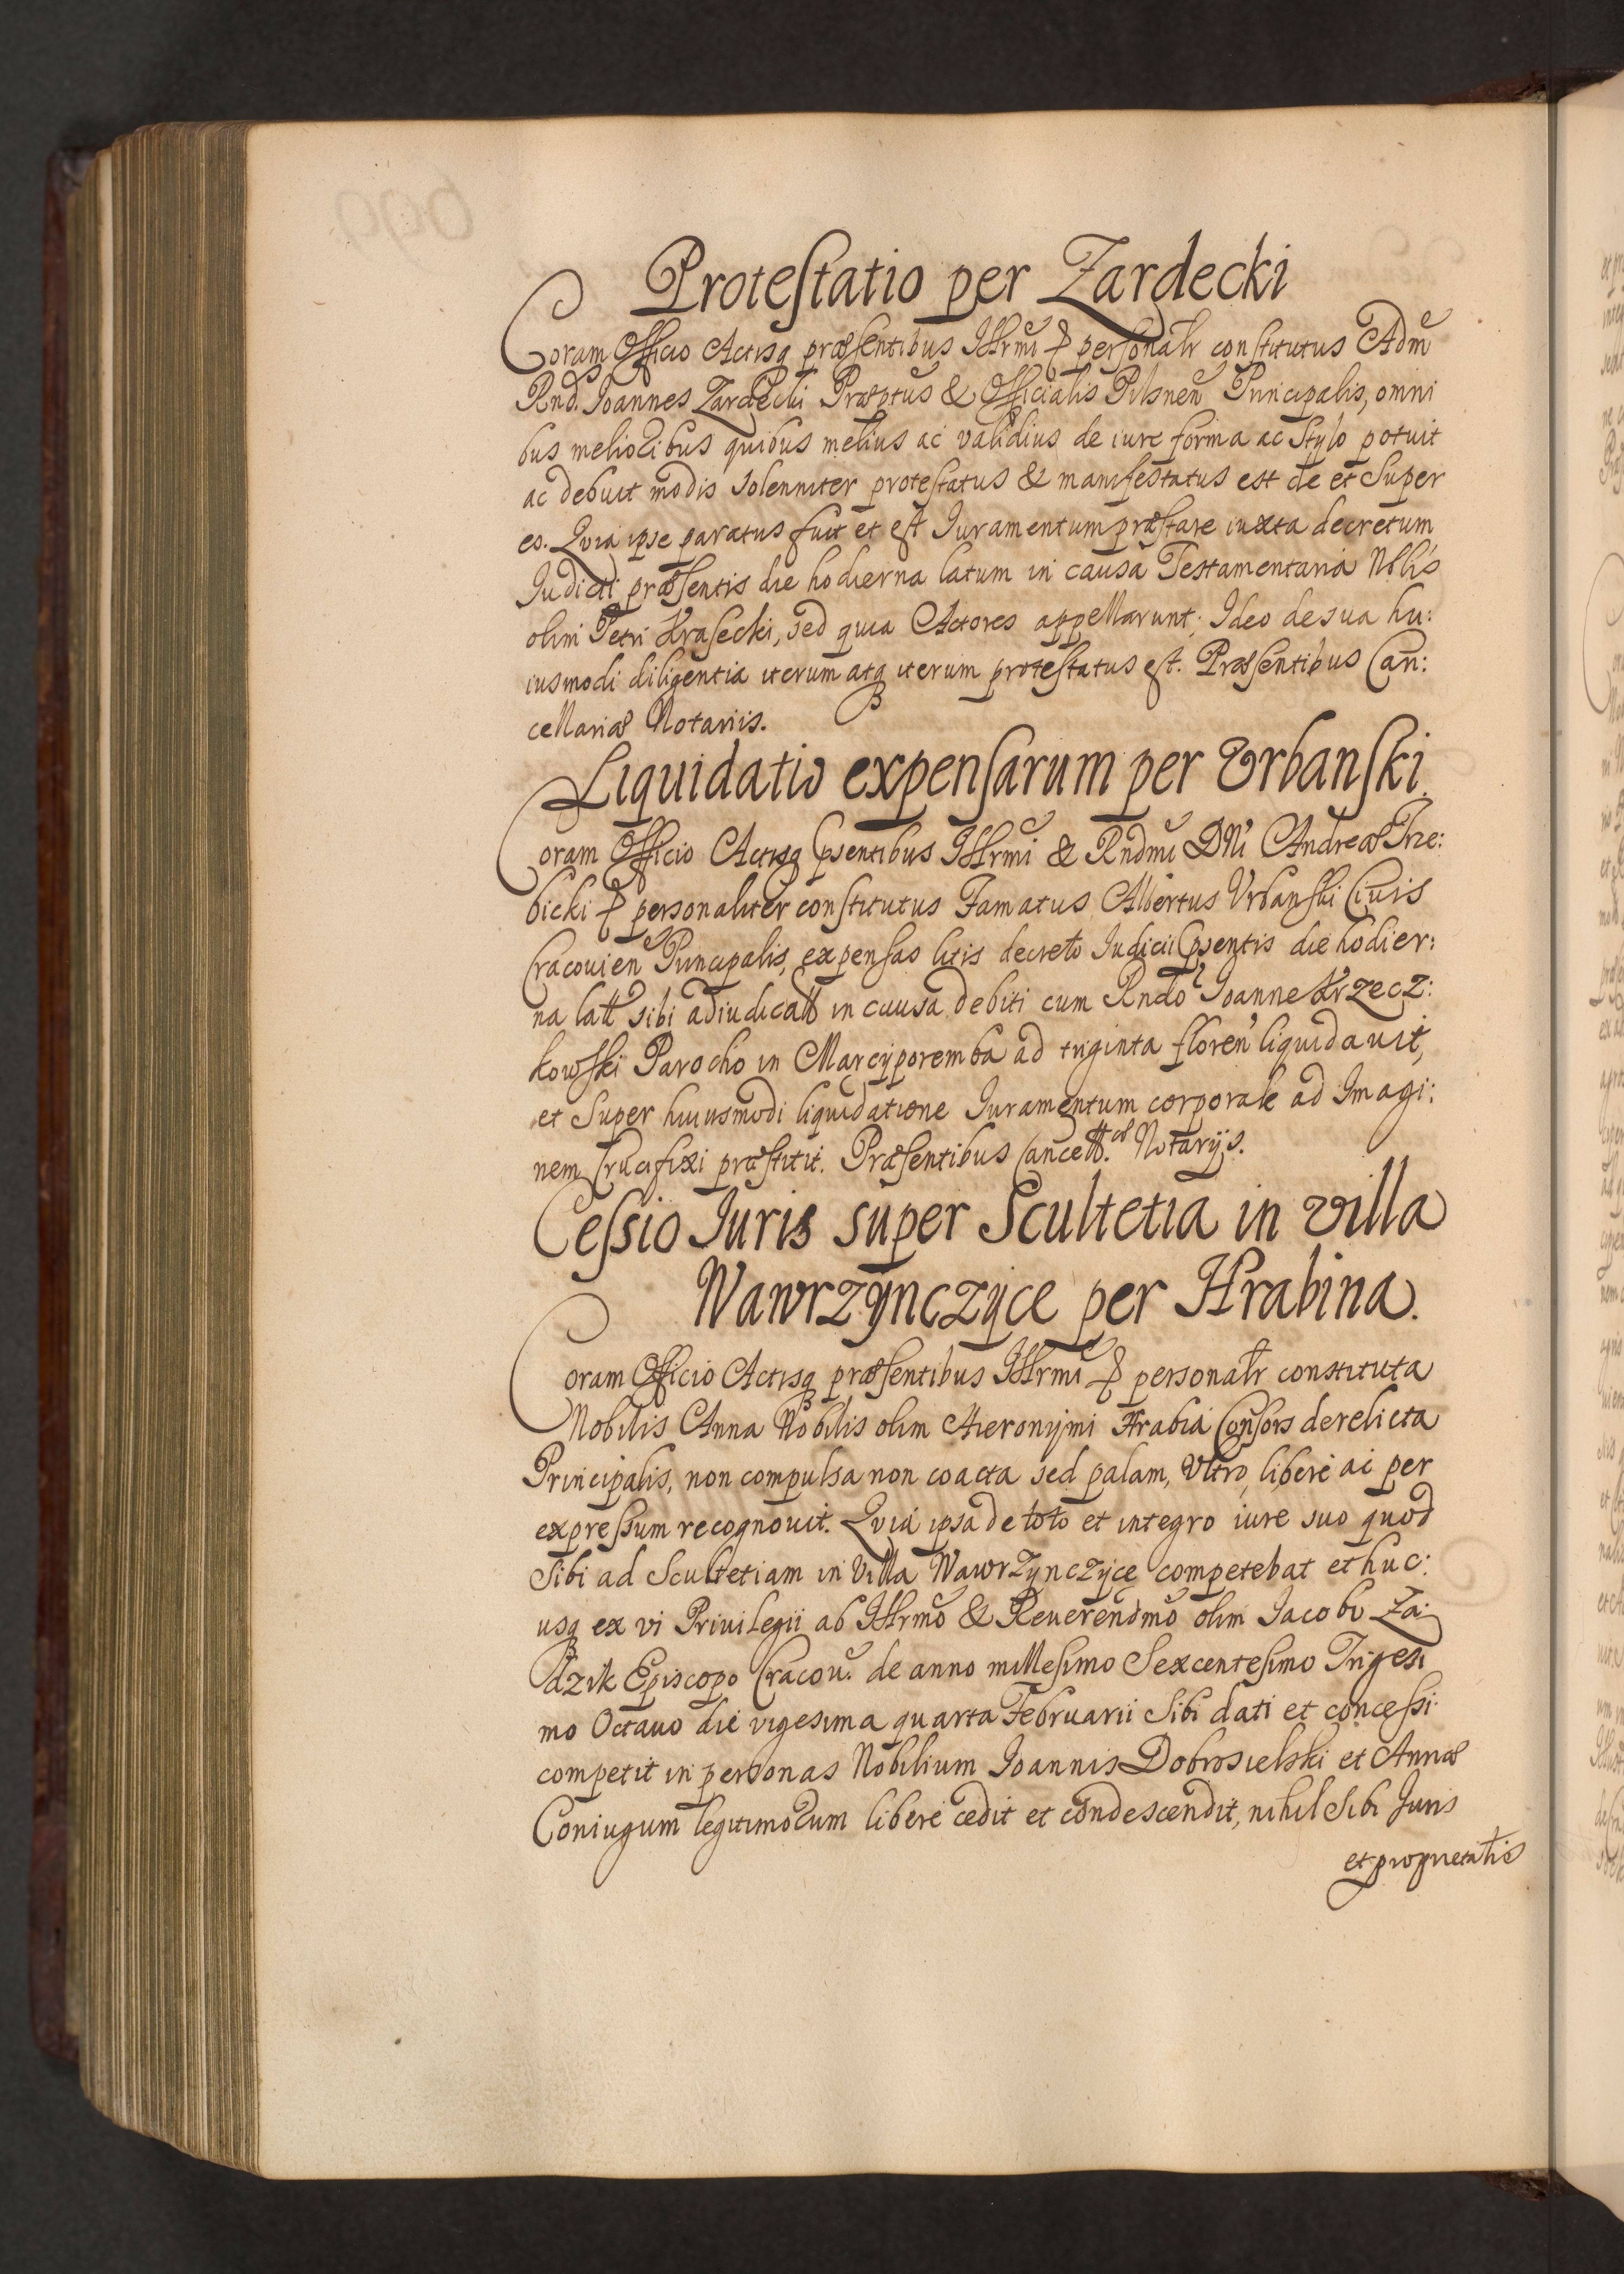 Protestatio per Zardecki
Coram Officio Actisq præsentibus Illrmi & personalr constitutus Adm
Rnd. Joannes Zardecki Præptus & Officialis Pilsnen Principalis, omni
bus melioribus quibus melius ac validius de iure forma ac Stylo potuit
ac debuit modis solenniter protestatus & manifestatus est de et super
eo. Quia ipse paratus fuit et est Juramentum præstare iuxta decretum
Judicii præsentis die hodierna latum in causa Testamentaria Nblis
olim Petri Krasecki, sed quia Actores appellarunt; Ideo de sua hu:
iusmodi diligentia iterum atq iterum protestatus est. Præsentibus Can:
cellariæ Notariis.
Liquidatio expensarum per Vrbanski.
Coram Officio Actisq psentibus Illrmi & Rndmi DNi Andreæ Trze:
bicki & personaliter constitutus Famatus Albertus Vrbanski Civis
Cracouien Principalis, expensas litis decreto Judicii psentis die hodier:
na latt sibi adiudicatt in causa debiti cum Rndo Joanne Krzecz:
kowski Parocho in Marcyporemba ad triginta floren liquidauit,
et super huiusmodi liquidatione Juramentum corporale ad Imagi:
nem Crucifixi præstitit. Præsentibus Cancell.æ Notarijs.
Cessio Juris super Scultetia in villa
Wawrzynczyce per Hrabina.
Coram Officio Actisq præsentibus Illrmi & personalr constituta
Nobilis Anna Nobilis olim Hieronymi Hrabia Consors derelicta
Principalis, non compulsa non coacta sed palam, Vltro, libere ac per
expressum recognouit. Quia ipsa de toto et integro iure suo quod
sibi ad Scultetiam in Villa Wawrzynczyce competebat et huc:
usq ex vi Priuilegii ab Illrmo & Reuerendmo olim Jacobo Za:
dzik Episcopo Cracou. de anno millesimo Sexcentesimo Trigesi
mo Octauo die vigesima quarta Februarii sibi dati et concessi
competit in personas Nobilium Joannis Dobrosielski et Annæ
Coniugum legitimorum libere cedit et condescendit, nihil sibi Juris
et proprietatis